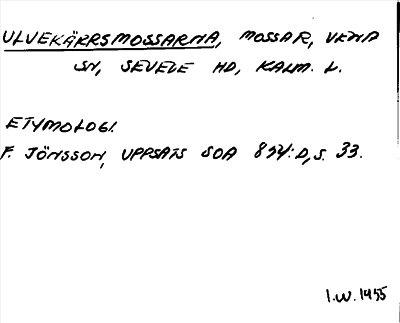 ULVEKÄRRSMOSSARNA, MOSSAR, VENA
SN, SEVEDE HD, KALM. L.
ETYMOLOGI.
F. JÖNSSON, UPPSATS SOA 854:D, S. 33.
I.W. 1955